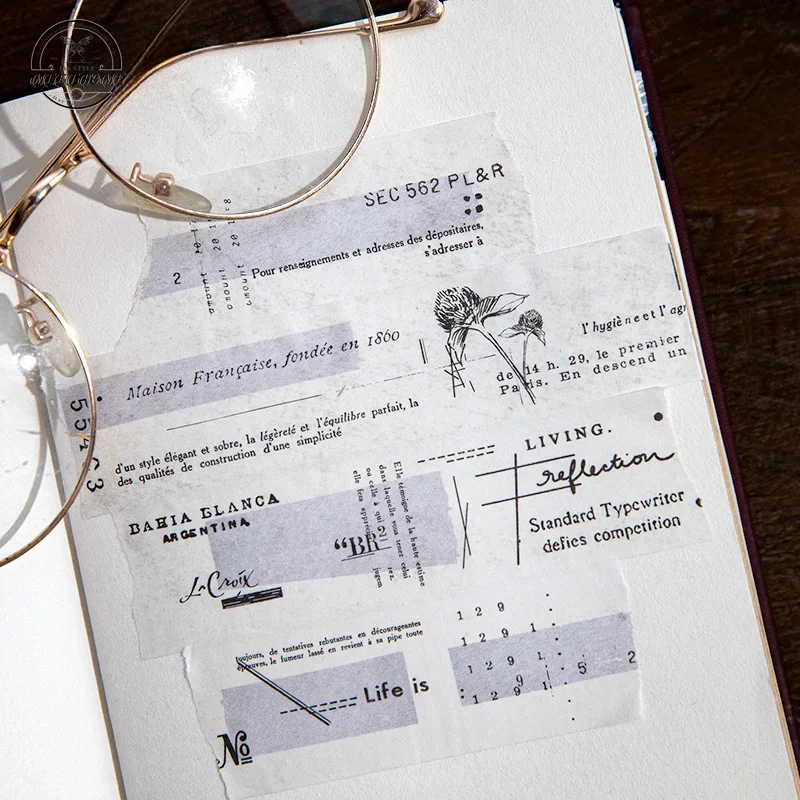 SEC 562 PL&R
2
amount 20
amount 20
Pour renseignements et adresses des dépositaires,
s'adresser à
l'hygiène et l'
Maison Française, fondée en 1860
de 14 h. 29, le premier
Paris. En descend un
d'un style élégant et sobre, la légèreté et l'équilibre parfait, la
des qualités de construction d'une simplicité
LIVING.
reflection
Standard Typewriter
defies competition
BAHIA BLANCA
ARGENTINA
Elle témoigne de la haute estime
dans laquelle vous tenez celui
ou celle à qui
elle fera
jugem
“BR
La Croix
toujours, de tentatives rebutantes en décourageantes
épreuves, le fumeur lassé en revient à sa pipe toute
Life is
No
1 2 9
1 2 9
1 2 9 1 5 2
1 2 9 1